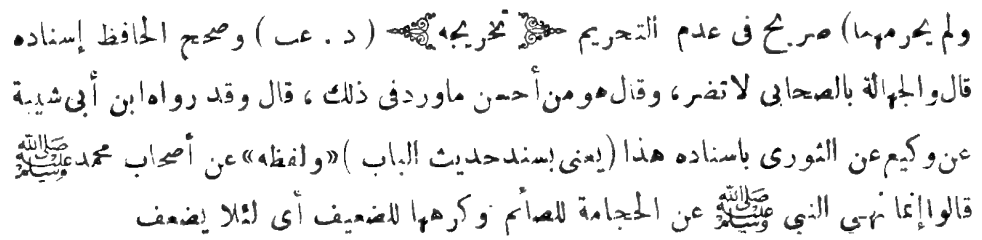 ولم يحرمهما) صريح فى عدم التحريم ﴿ تخريجه ﴾ (د . عب) وصحح الحافظ إسناده
قال والجهالة بالصحابى لاتضر، وقال هو من أحسن ماورد فى ذلك ، قال وقد رواه ابن أبى شيبة
عن وكيع عن الثورى باسناده هذا (يعنى بسند حديث الباب) «ولفظه» عن أصحاب محمد ﷺ
قالوا إنما نهى النبى ﷺ عن الحجامة للصائم وكرهها للضعيف أى لئلا يضعف